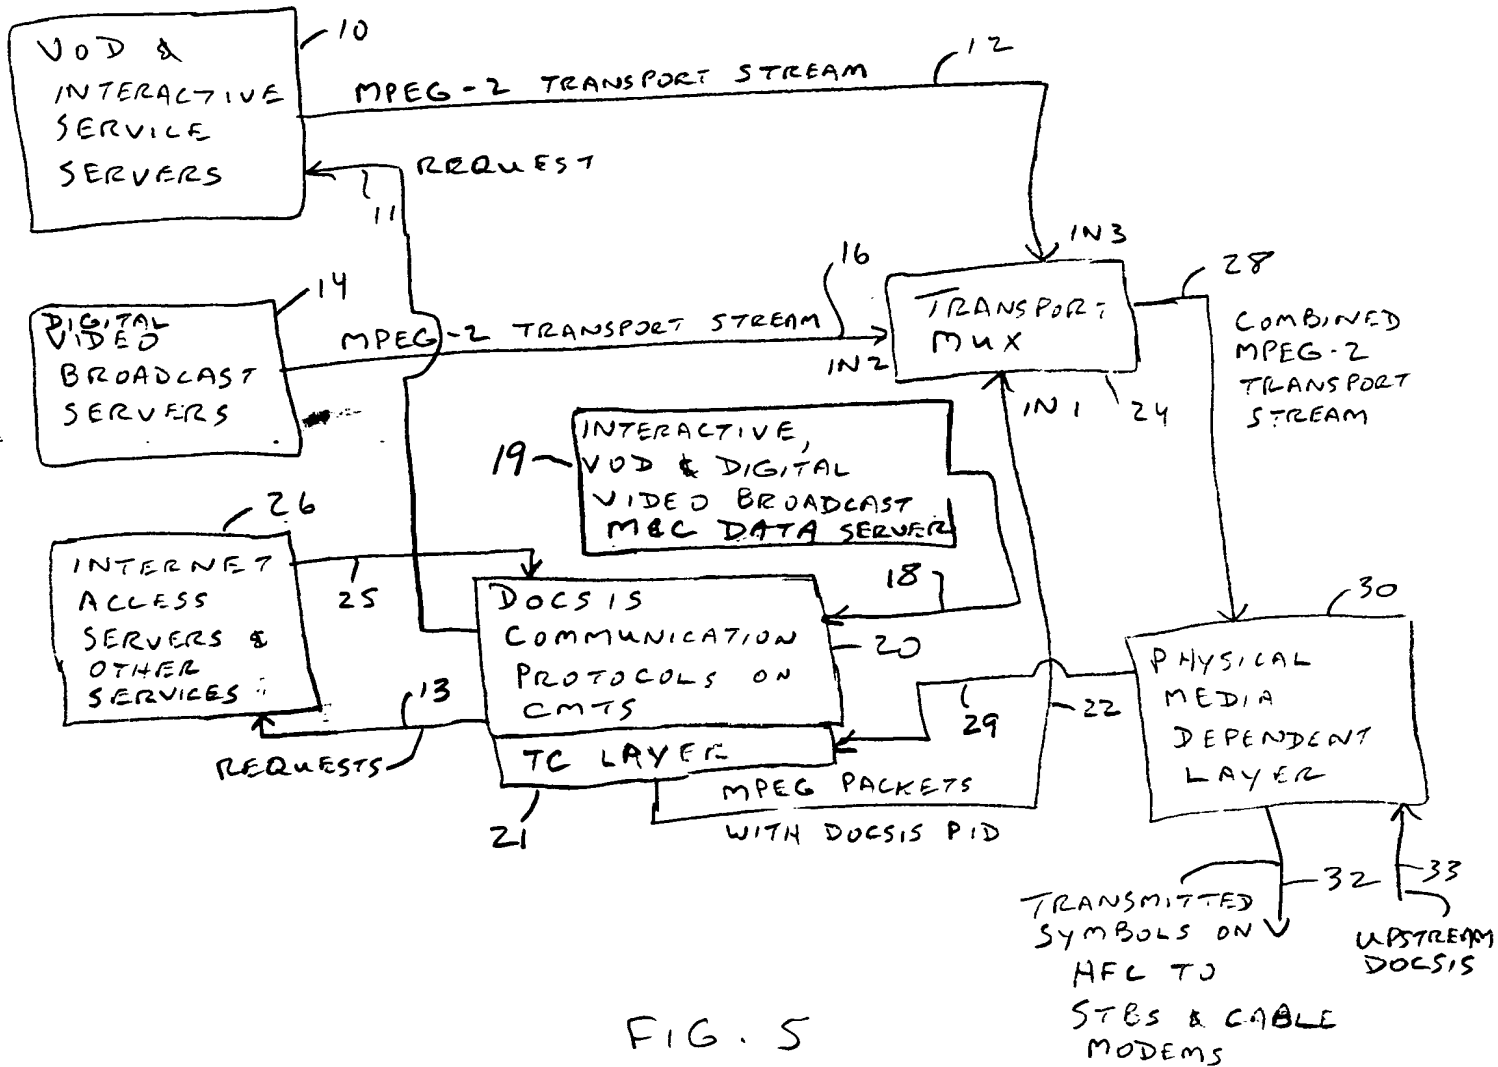 VOD &
INTERACTIVE
SERVICE
SERVERS
10
MPEG-2 TRANSPORT STREAM
12
REQUEST
11
IN3
14
DIGITAL
VIDEO
BROADCAST
SERVERS
MPEG-2 TRANSPORT STREAM
16
IN2
TRANSPORT
MUX
IN1
24
28
COMBINED
MPEG-2
TRANSPORT
STREAM
19
INTERACTIVE,
VOD & DIGITAL
VIDEO BROADCAST
M&C DATA SERVER
18
26
INTERNET
ACCESS
SERVERS &
OTHER
SERVICES
25
13
REQUESTS
DOCSIS
COMMUNICATION
PROTOCOLS ON
CMTS
20
TC LAYER
21
MPEG PACKETS
WITH DOCSIS PID
29
22
30
PHYSICAL
MEDIA
DEPENDENT
LAYER
32
33
TRANSMITTED
SYMBOLS ON
HFC TO
STBS & CABLE
MODEMS
UPSTREAM
DOCSIS
FIG. 5